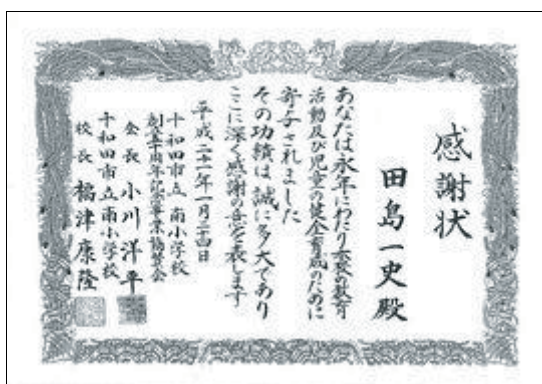 感謝状
田島一史殿
あなたは永年にわたり本校の教育
活動及び児童の健全育成のために
寄与されました
その功績は誠に多大であり
ここに深く感謝の意を表します
平成二十一年一月二十四日
十和田市立南小学校
創立十周年記念事業協賛会
会長 小川洋平
十和田市立南小学校
校長 福津康隆